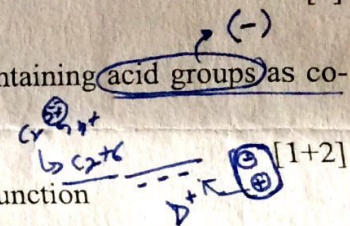 (-)
ntaining acid groups as co-
[1+2]
unction
D+